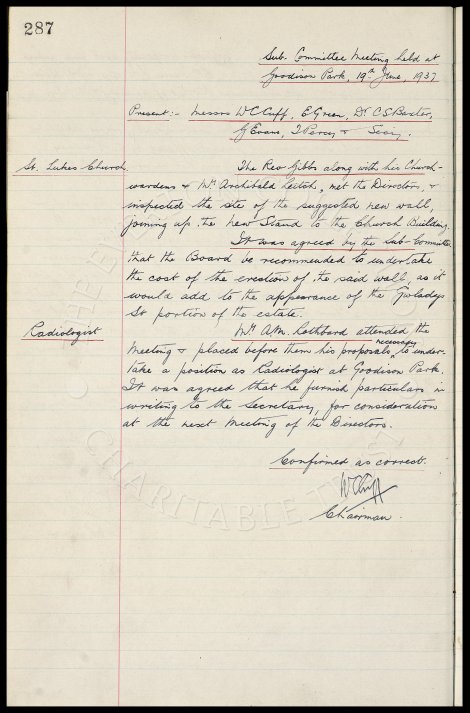 287
Sub. Committee Meeting held at
Goodison Park, 19th June, 1937
Present:- Messrs W C Cuff, E Green, Dr C S Baxter,
G Evans, T Percy & Secy.
St. Lukes Church. The Rev Gibbs along with his Church-
wardens & Mr Archibald Leitch, met the Directors, &
inspected the site of the suggested new wall,
joining up the new Stand to the Church Building.
It was agreed by the Sub-Committee
that the Board be recommended to undertake
the cost of the erection of the said wall, as it
would add to the appearance of the Gwladys
St portion of the estate.
Radiologist Mr A.M. Lothbard attended the
Meeting & placed before them his proposals, necessary to under-
take a position as Radiologist at Goodison Park.
It was agreed that he furnish particulars in
writing to the Secretary, for consideration
at the next Meeting of the Directors.
Confirmed as correct.
W C Cuff
Chairman.
CHARITABLE